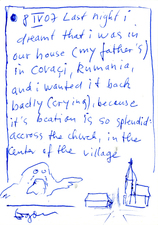 8 IV 07 Last night i
dreamt that i was in
our house (my father's)
in Covaci, Rumania,
and i wanted it back
badly (crying), because
it's location is so splendid:
accross the church, in the
center of the village